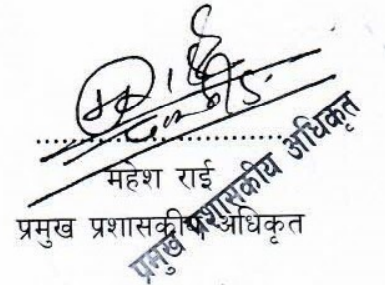 महेश राई
प्रमुख प्रशासकीय अधिकृत
प्रमुख प्रशासकीय अधिकृत